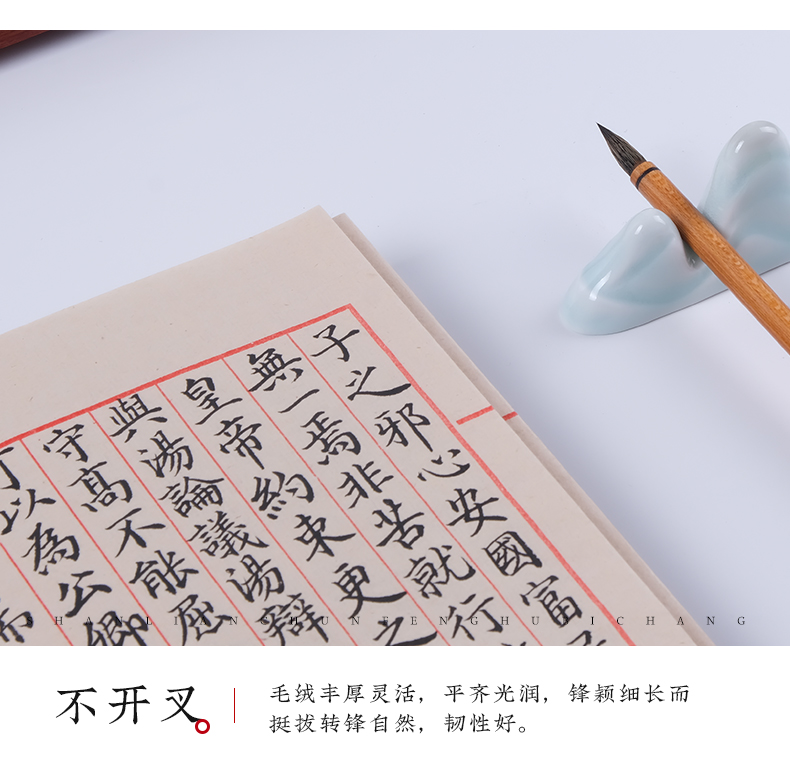 子之邪心安國富
無一焉非苦就行
皇帝約束更之
與湯論議湯辯
守高不能屈
以為公卿
SHANLIANCHUNFENGHUBICHANG
不开叉
毛绒丰厚灵活，平齐光润，锋颖细长而
挺拔转锋自然，韧性好。